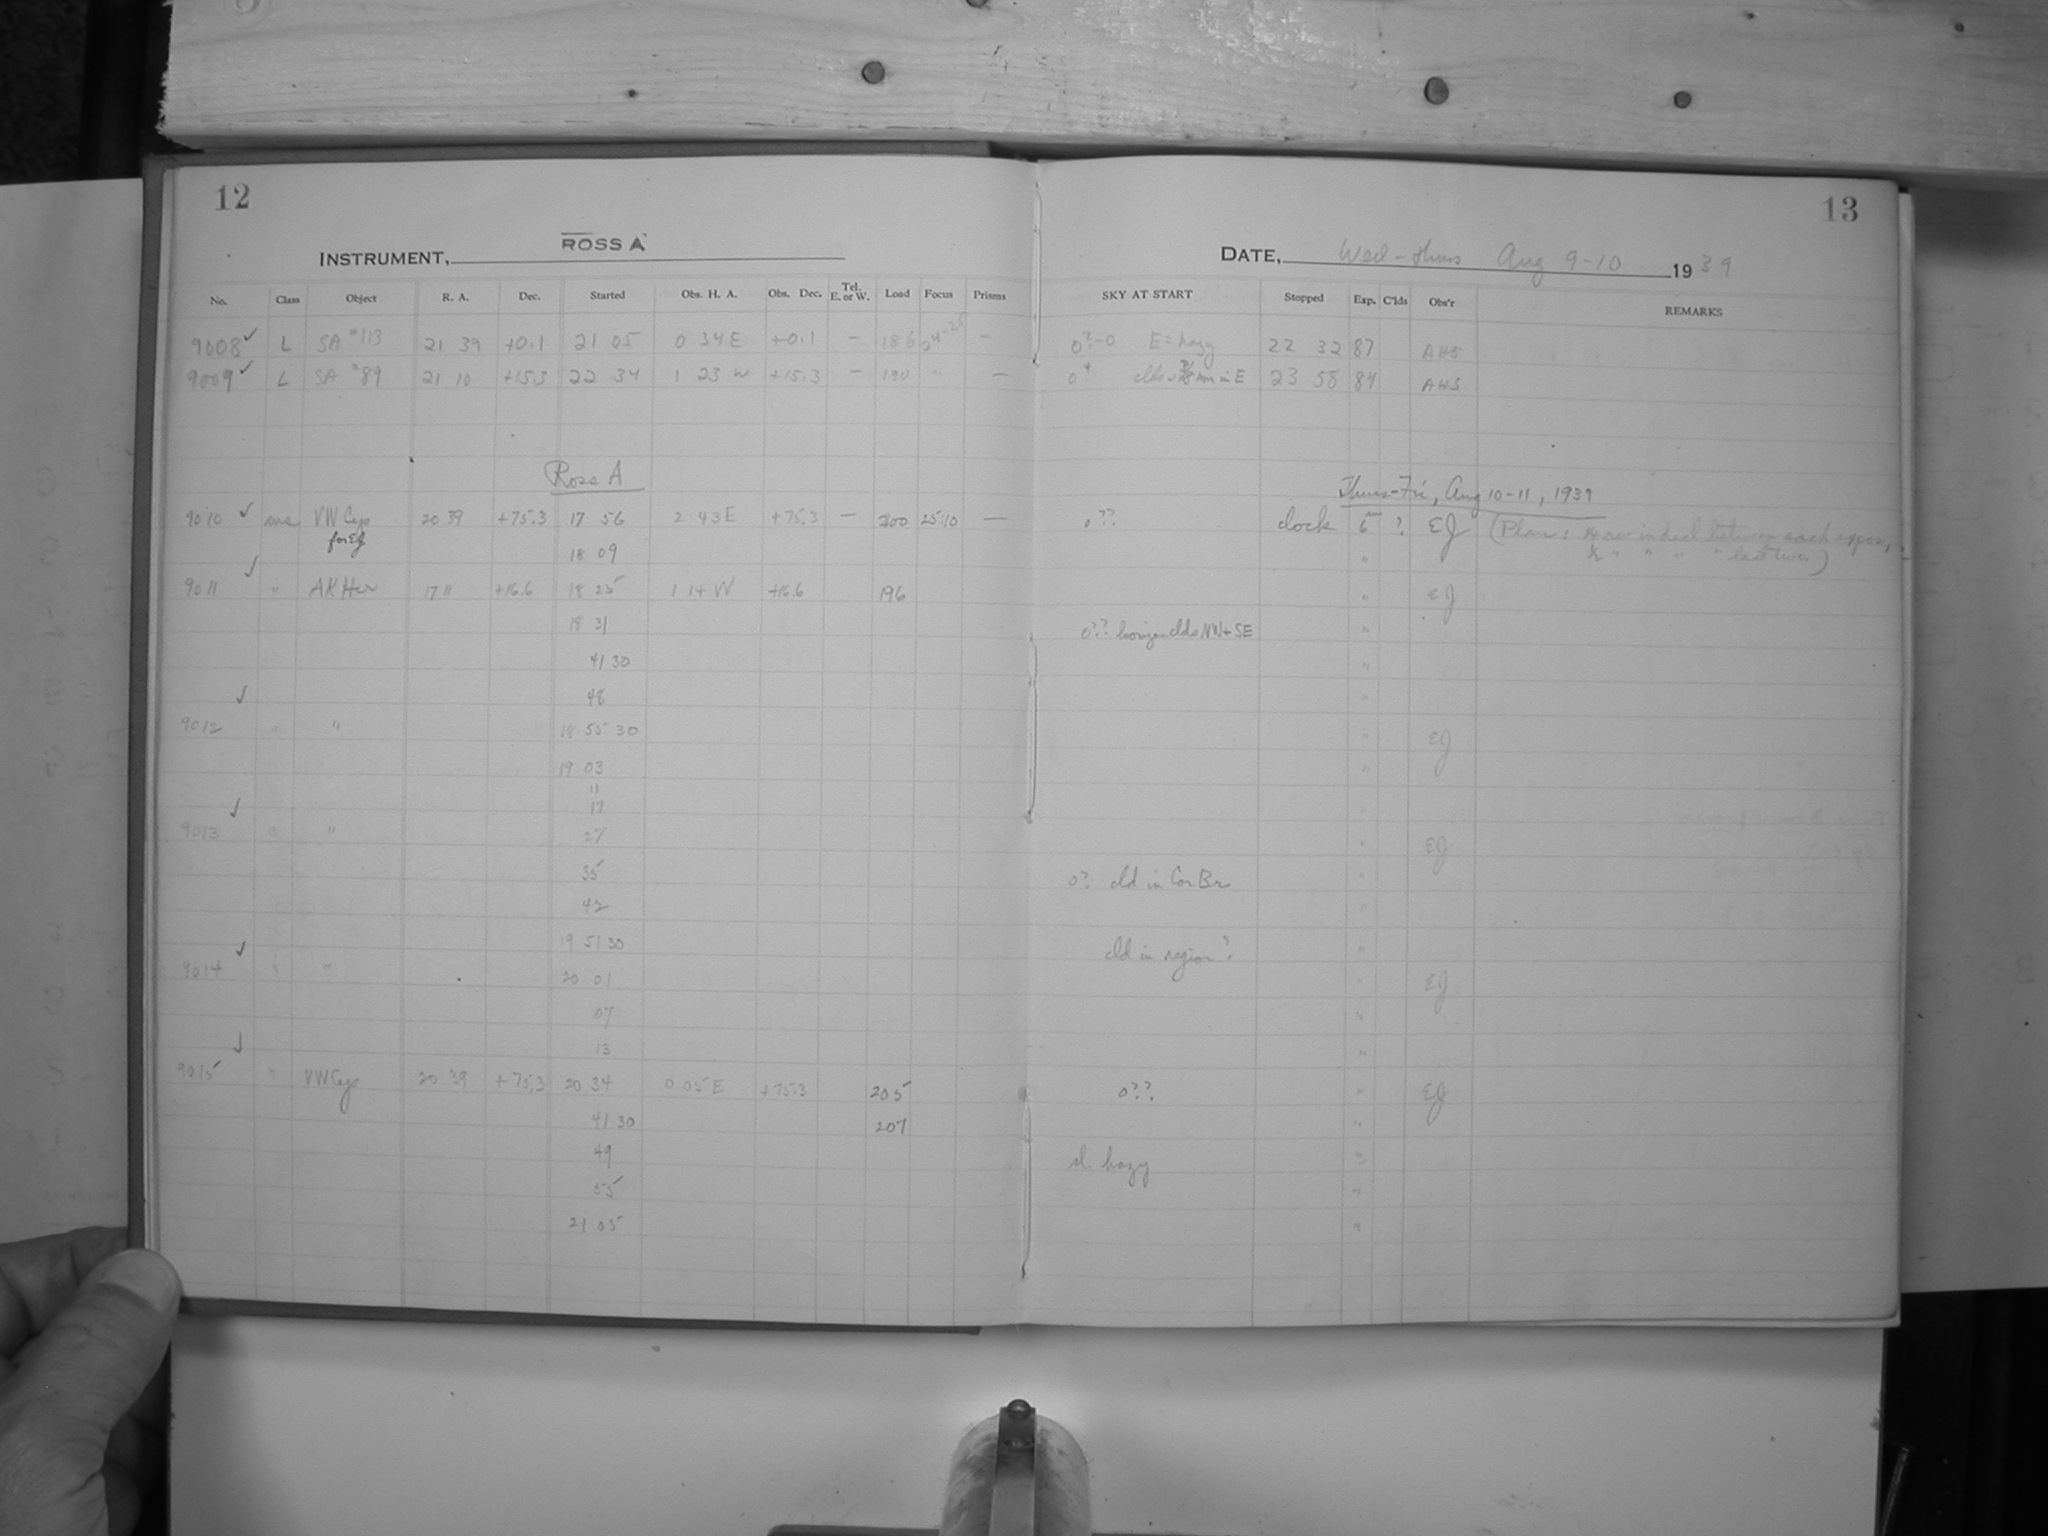 12
13
INSTRUMENT, ROSS A
DATE, Wed-Thurs Aug 9-10 1939
No. Class Object R. A. Dec. Started Obs. H. A. Obs. Dec. Tel. E. or W. Load Focus Prisms SKY AT START Stopped Exp. C'lds Obs'r REMARKS
9008 ✓ L SA #113 21 39 +0.1 21 05 0 34 E +0.1 — 186 — 0?-0 E = hazy 22 32 87 AHS
9009 ✓ L SA #89 21 10 +15.3 22 34 1 23 W +15.3 — 190 " — clds in E 23 58 84 AHS
Ross A
Thurs-Fri, Aug 10-11, 1939
9010 ✓ ms VW Cep 20 39 +75.3 17 56 2 43 E +75.3 — 200 25:10 — 0?? clock 6 ? EJ (Plan: between each expos,
for EJ
18 09 " " " " " last two)
9011 ✓ " AK Her 17 11 +16.6 18 25 1 14 W +16.6 196 " EJ
18 31 0?? horizon clds NW + SE "
41 30 "
48 "
9012 ✓ " " 18 55 30 " EJ
19 03 "
11
17 "
9013 ✓ " " 27 " EJ
35 0? cld in Cor Br "
42 "
19 51 30 cld in region? "
9014 ✓ " " 20 01 " EJ
07 "
13 "
9015 ✓ " VW Cep 20 39 +75.3 20 34 0 05 E +75.3 205 0?? " EJ
41 30 207 "
49 sl. hazy "
55 "
21 05 "